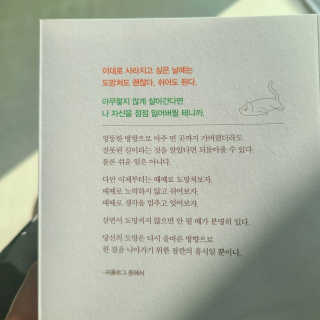 이대로 사라지고 싶은 날에는
도망쳐도 괜찮다. 쉬어도 된다.
아무렇지 않게 살아간다면
나 자신을 점점 잃어버릴 테니까.
엉뚱한 방향으로 아주 먼 곳까지 가버렸더라도
잘못된 길이라는 것을 알았다면 되돌아올 수 있다.
물론 쉬운 일은 아니다.
다만 이제부터는 때때로 도망쳐보자.
때때로 노력하지 않고 쉬어보자.
때때로 생각을 멈추고 잊어보자.
살면서 도망치지 않으면 안 될 때가 분명히 있다.
당신의 도망은 다시 올바른 방향으로
한 걸음 나아가기 위한 잠깐의 휴식일 뿐이다.
-프롤로그 중에서